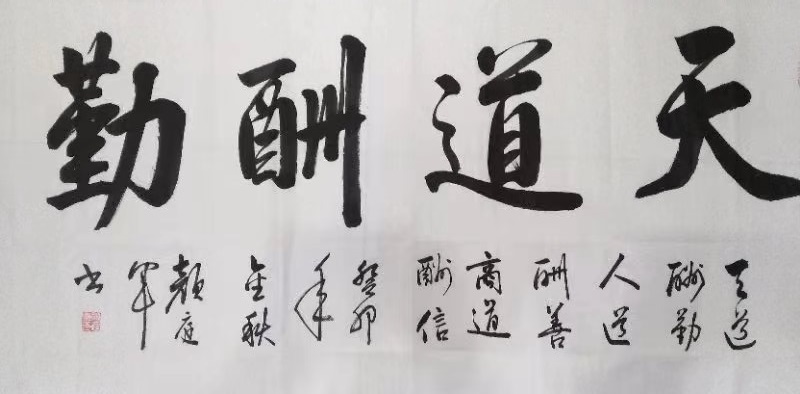 天道酬勤
天道
酬勤
人道
酬善
商道
酬信
癸卯
年
金秋
颜庭
军
书